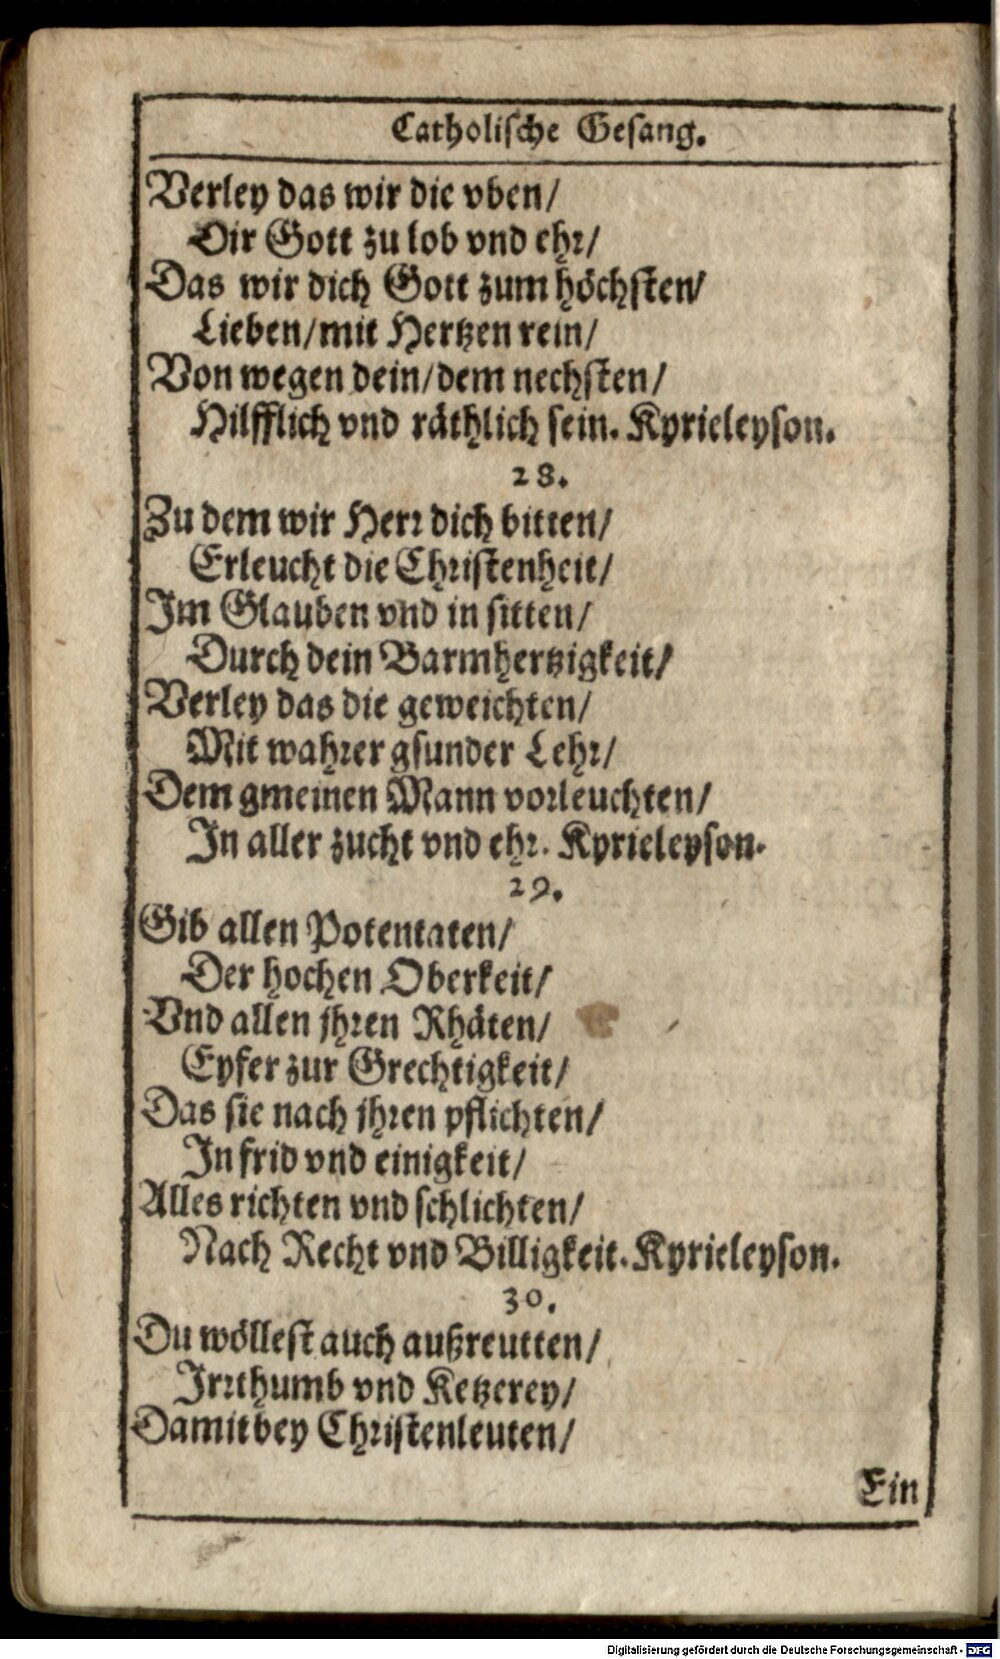 Catholische Gesang.
Verley das wir die vben/
Dir Gott zu lob vnd ehr/
Das wir dich Gott zum höchsten/
Lieben/mit Hertzen rein/
Von wegen dein/dem nechsten/
Hilfflich vnd räthlich sein. Kyrieleyson.
28.
Zu dem wir Herr dich bitten/
Erleucht die Christenheit/
Im Glauben vnd in sitten/
Durch dein Barmhertzigkeit/
Verley das die geweichten/
Mit wahrer gsunder Lehr/
Dem gmeinen Mann vorleuchten/
In aller zucht vnd ehr. Kyrieleyson.
29.
Gib allen Potentaten/
Der hochen Oberkeit/
Vnd allen jhren Rhäten/
Eyfer zur Grechtigkeit/
Das sie nach jhren pflichten/
In frid vnd einigkeit/
Alles richten vnd schlichten/
Nach Recht vnd Billigkeit. Kyrieleyson.
30.
Du wöllest auch außreutten/
Irrthumb vnd Ketzerey/
Damit bey Christenleuten/
Ein
Digitalisierung gefördert durch die Deutsche Forschungsgemeinschaft - DFG